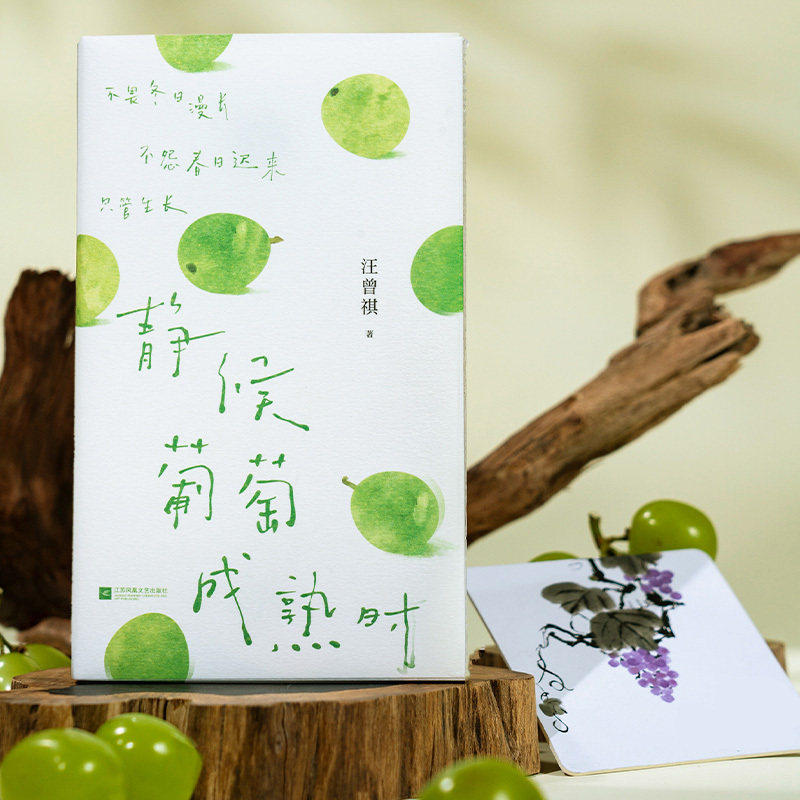 不畏冬日漫长
不怨春日迟来
只管生长
汪曾祺 著
静候葡萄成熟时
江苏凤凰文艺出版社